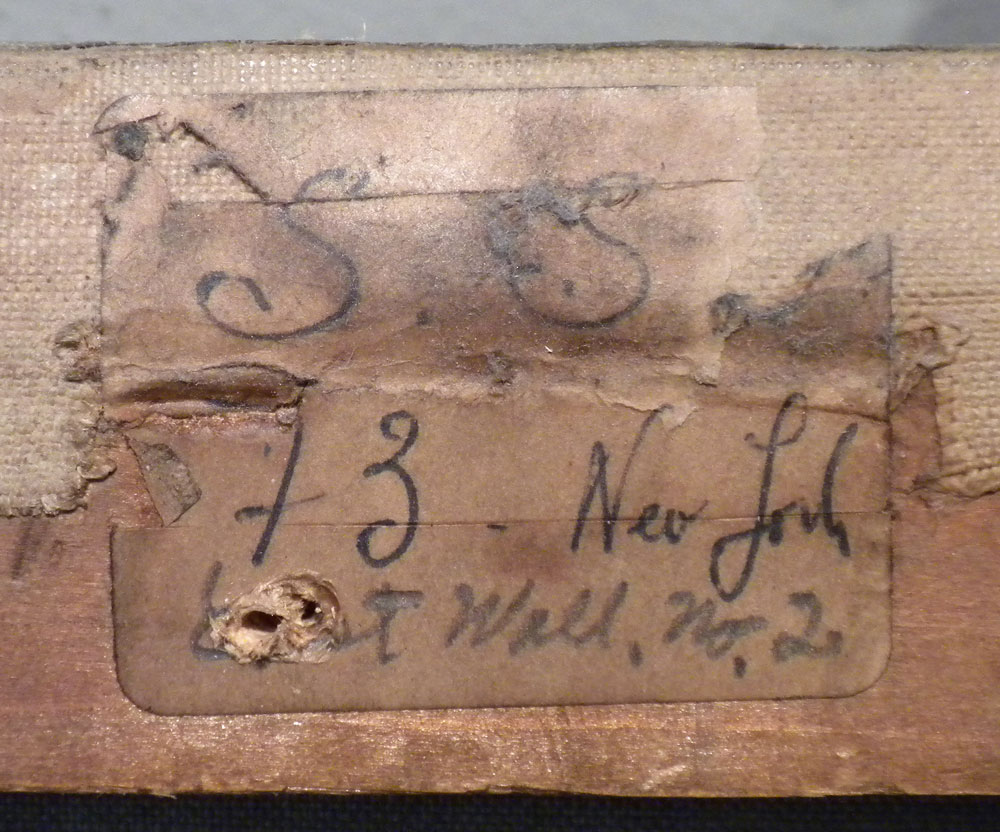 S. S.
73 - New York
Wall, No. 2.